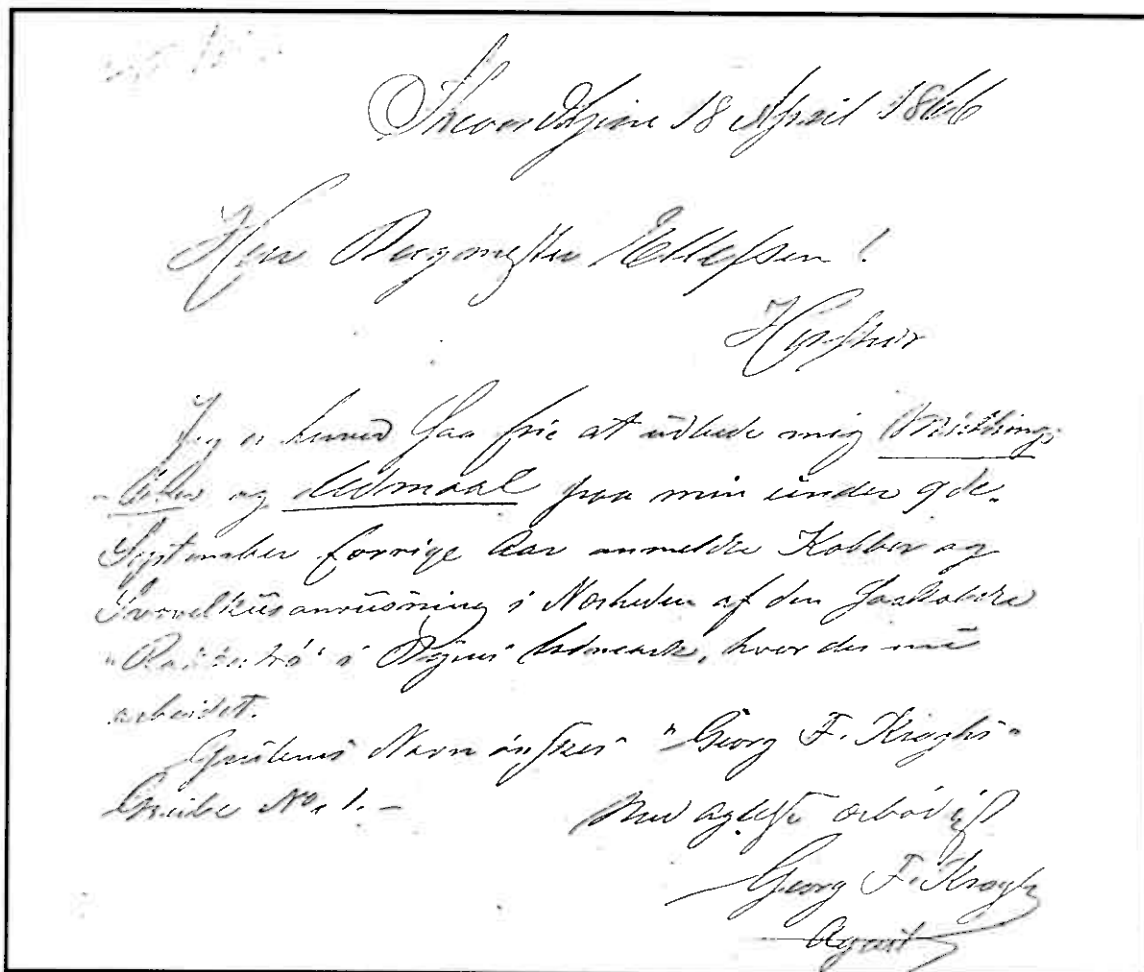 Throndhjem 18 April 1866
Herr Bergmester Ellefsen!
Jeg er herved saa frie at udbede mig Muthings
og Udmaal paa min under 9de
September forrige Aar anmeldte Kobber og
Svovelkiisanviisning i Nærheden af den saakaldte
i Røgnis hvor der nu
arbeides.
Grubens Navn ønskes "Georg F. Kraghs"
Grube No. 1. –
Med agtelse ærbødigst
Georg F. Kragh
Agent